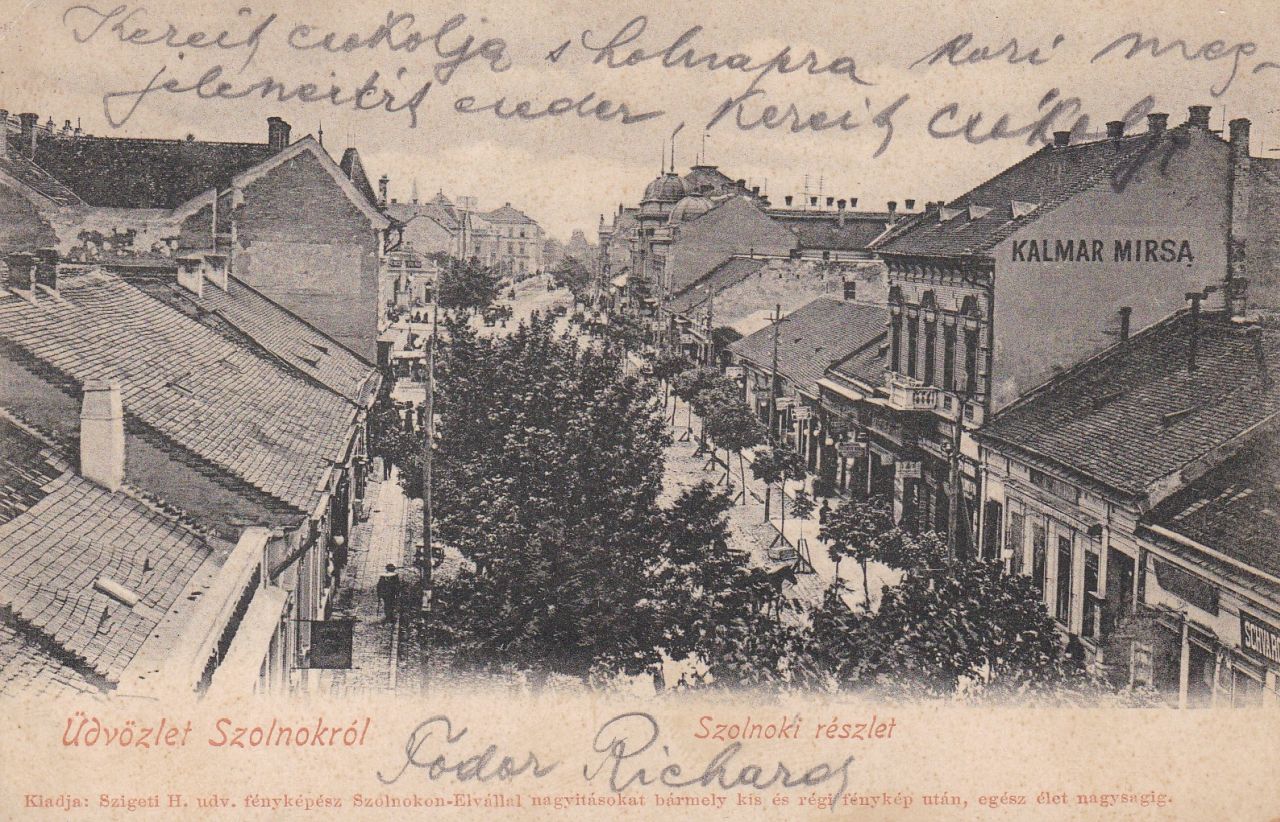 Kezeit csokolja s holnapra kari meg-
jeleneisért eseder, Kezeit csókolj
KALMAR MIRSA
SCHVAR
Üdvözlet Szolnokról
Szolnoki részlet
Fodor Richard
Kiadja: Szigeti H. udv. fényképész Szolnokon-Elvállal nagyitásokat bármely kis és régi fénykép után, egész élet nagyságig.